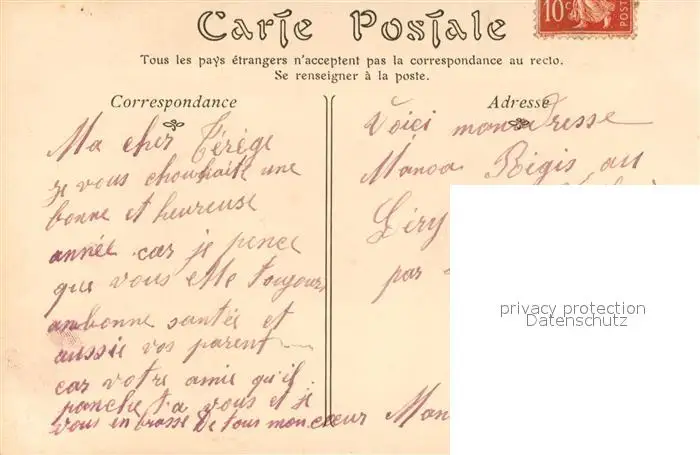 Carte Postale
10c
POSTES
Tous les pays étrangers n'acceptent pas la correspondance au recto.
Se renseigner à la poste.
Correspondance
Ma cher Térége
je vous chouhaite une
bonne et heureuse
année car je pence
que vous ette toujours
anbonne santée et
aussie vos parent
car votre amie qu'il
panche ta vous et je
vous en brasse De tous mon cœur
Adresse
Voici mon Dresse
Manoa Régis au
Léry
par
Man
privacy protection
Datenschutz